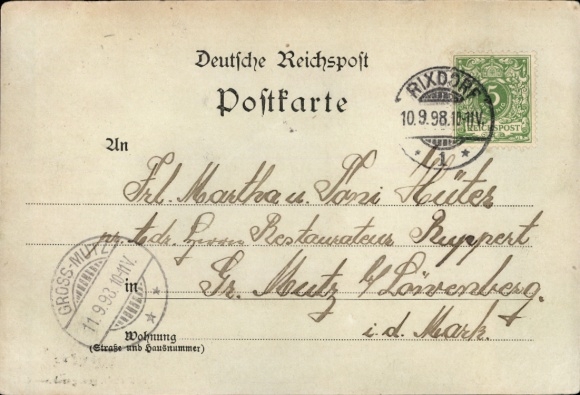 Deutsche Reichspost
Postkarte
RIXDORF
10.9.98.10-11V.
* 1 *
5
REICHSPOST
An
Frl. Martha u. Toni Hüter
pr. Adr. Herrn Restaurateur Ruppert
in Gr. Mutz b/ Löwenberg.
i. d. Mark.
GROSS-MUTZ
11.9.98.10-11V.
* *
Wohnung
(Straße und Hausnummer)